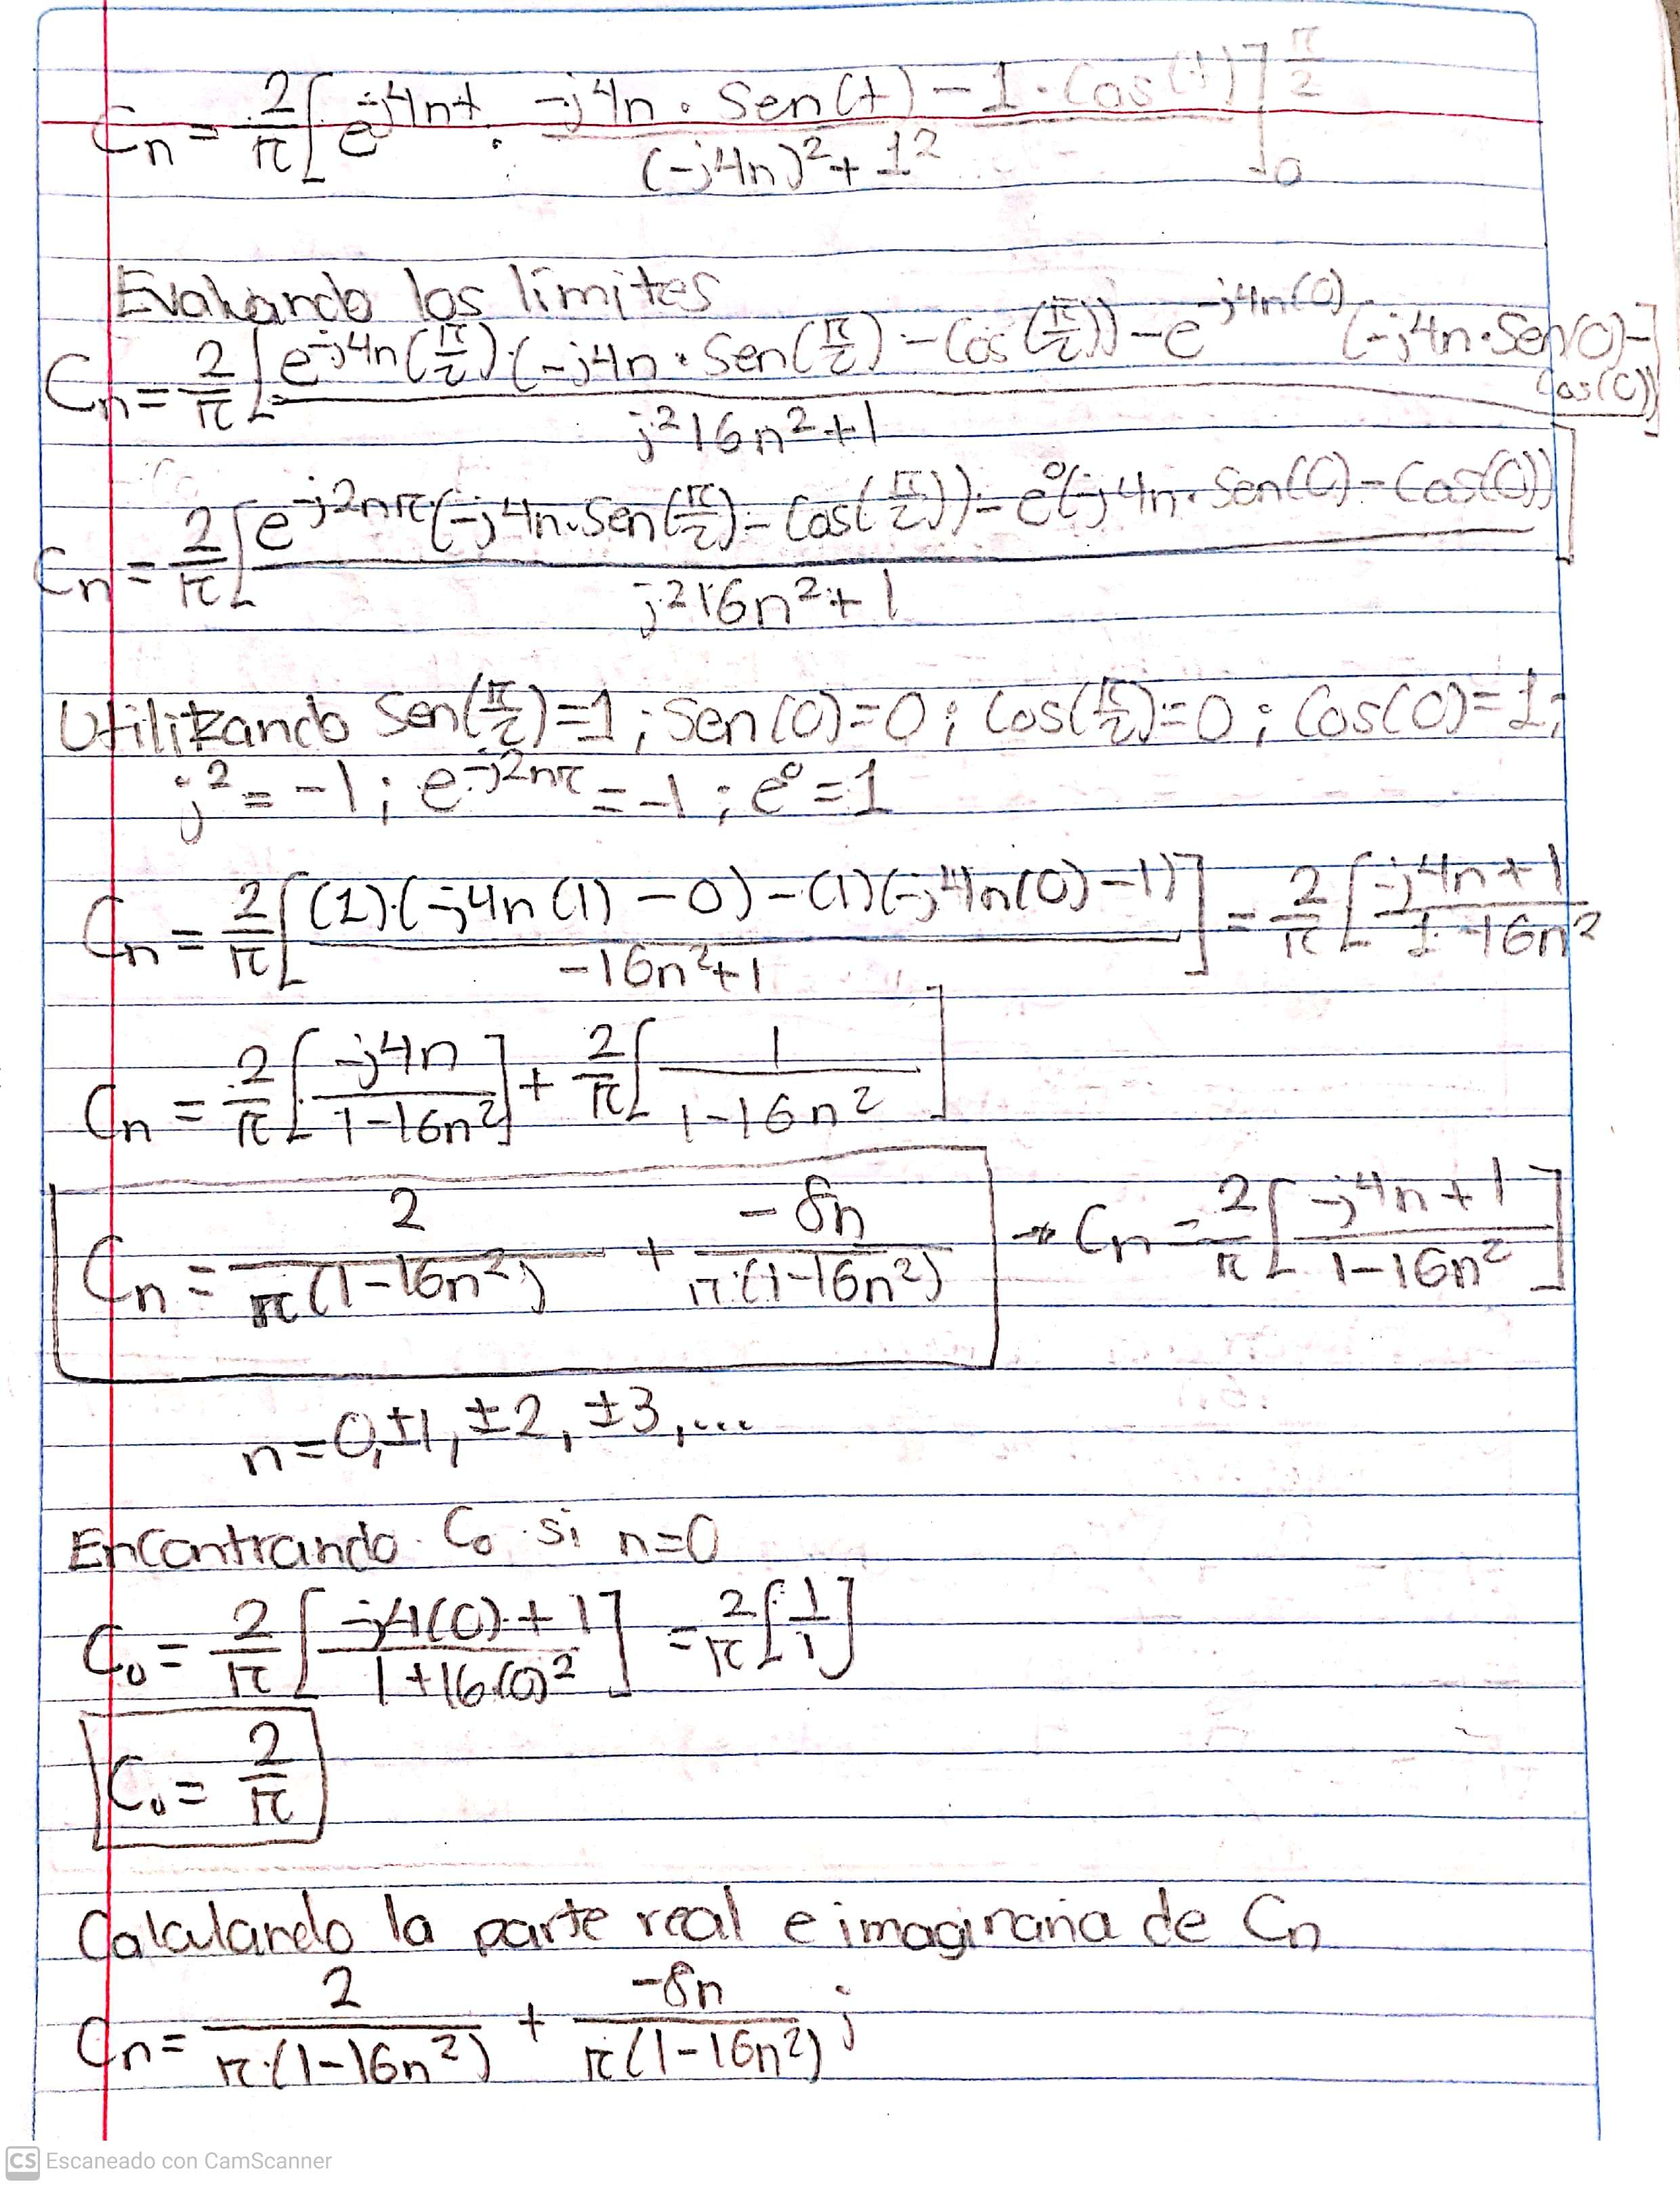 Cn = 2/π [ e^(-j4nt) · (-j4n · Sen(t) - 1 · Cos(t)) / ((-j4n)² + 1²) ]₀^(π/2)
Evaluando los límites
Cn = 2/π [ (e^(-j4n(π/2)) · (-j4n · Sen(π/2) - Cos(π/2)) - e^(-j4n(0)) · (-j4n · Sen(0) - Cos(0))) / (j²16n² + 1) ]
Cn = 2/π [ (e^(-j2nπ) (-j4n · Sen(π/2) - Cos(π/2)) - e⁰(-j4n · Sen(0) - Cos(0))) / (j²16n² + 1) ]
Utilizando Sen(π/2)=1; Sen(0)=0; Cos(π/2)=0; Cos(0)=1;
j² = -1; e^(-j2nπ) = -1; e⁰ = 1
Cn = 2/π [ ((1)·(-j4n(1) - 0) - (1)(-j4n(0) - 1)) / (-16n² + 1) ] = 2/π [ (-j4n + 1) / (1 - 16n²)
Cn = 2/π [ -j4n / (1 - 16n²) ] + 2/π [ 1 / (1 - 16n²) ]
Cn = 2 / (π(1 - 16n²)) + -8n / (π·(1 - 16n²)) → Cn = 2/π [ (-j4n + 1) / (1 - 16n²) ]
n = 0, ±1, ±2, ±3, ...
Encontrando C₀ si n=0
C₀ = 2/π [ (-j4(0) + 1) / (1 + 16(0)²) ] = 2/π [ 1/1 ]
C₀ = 2/π
Calculando la parte real e imaginaria de Cn
Cn = 2 / (π·(1 - 16n²)) + -8n / (π(1 - 16n²)) j
CS Escaneado con CamScanner